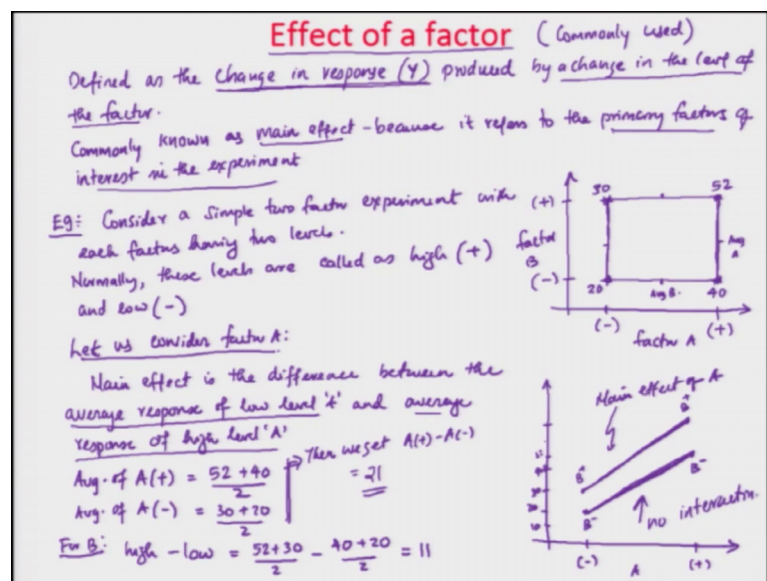 Effect of a factor (Commonly used)
Defined as the change in response (Y) produced by a change in the level of
the factor.
Commonly known as main effect - because it refers to the primary factors of
interest in the experiment
Eg: Consider a simple two factor experiment with
each factor having two levels.
Normally, these levels are called as high (+)
and low (-)
Let us consider factor A:
Main effect is the difference between the
average response of low level 'A' and average
response of high level 'A'
Avg. of A(+) = 52 + 40 / 2
Avg. of A(-) = 30 + 20 / 2
Then we get A(+) - A(-)
= 21
For B: high - low = 52+30 / 2 - 40+20 / 2 = 11
30 52
(+)
factor
B
Avg
A
(-)
20 Avg B- 40
(-) factor A (+)
Main effect of A
B+ B+
B- B-
no interaction
(-) A (+)